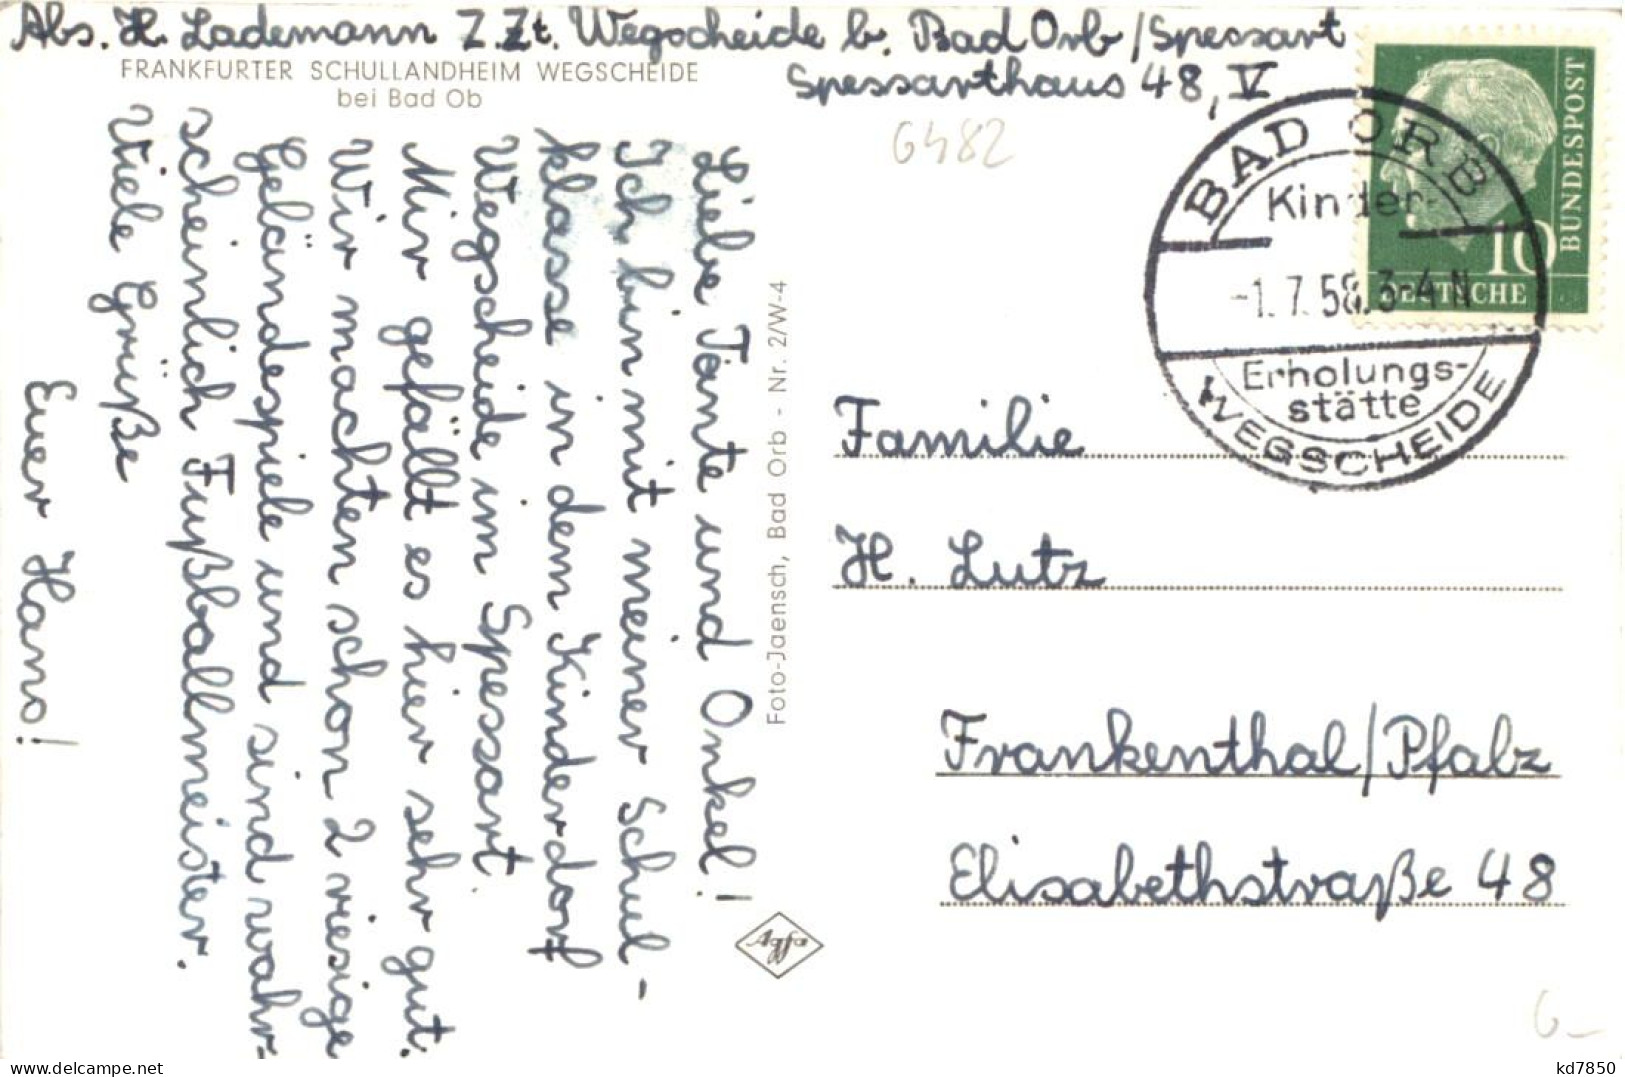 Abs. H. Lademann Z.Zt. Wegscheide b. Bad Orb/Spessart
Spessarthaus 48, V
FRANKFURTER SCHULLANDHEIM WEGSCHEIDE
bei Bad Ob
6482
Liebe Tante und Onkel!
Ich bin mit meiner Schul-
klasse in dem Kinderdorf
Wegscheide im Spessart.
Mir gefällt es hier sehr gut.
Wir machten schon 2 riesige
Geländespiele und sind wahr-
scheinlich Fußballmeister.
Viele Grüße
Euer Hans!
Foto-Jaensch, Bad Orb - Nr. 2/W-4
Agfa
BAD ORB
Kinder-
-1.7.58.3-4N
Erholungs-
stätte
WEGSCHEIDE
10
DEUTSCHE
BUNDESPOST
Familie
H. Lutz
Frankenthal/Pfalz
Elisabethstraße 48
6-
oldthing.de
kd7850